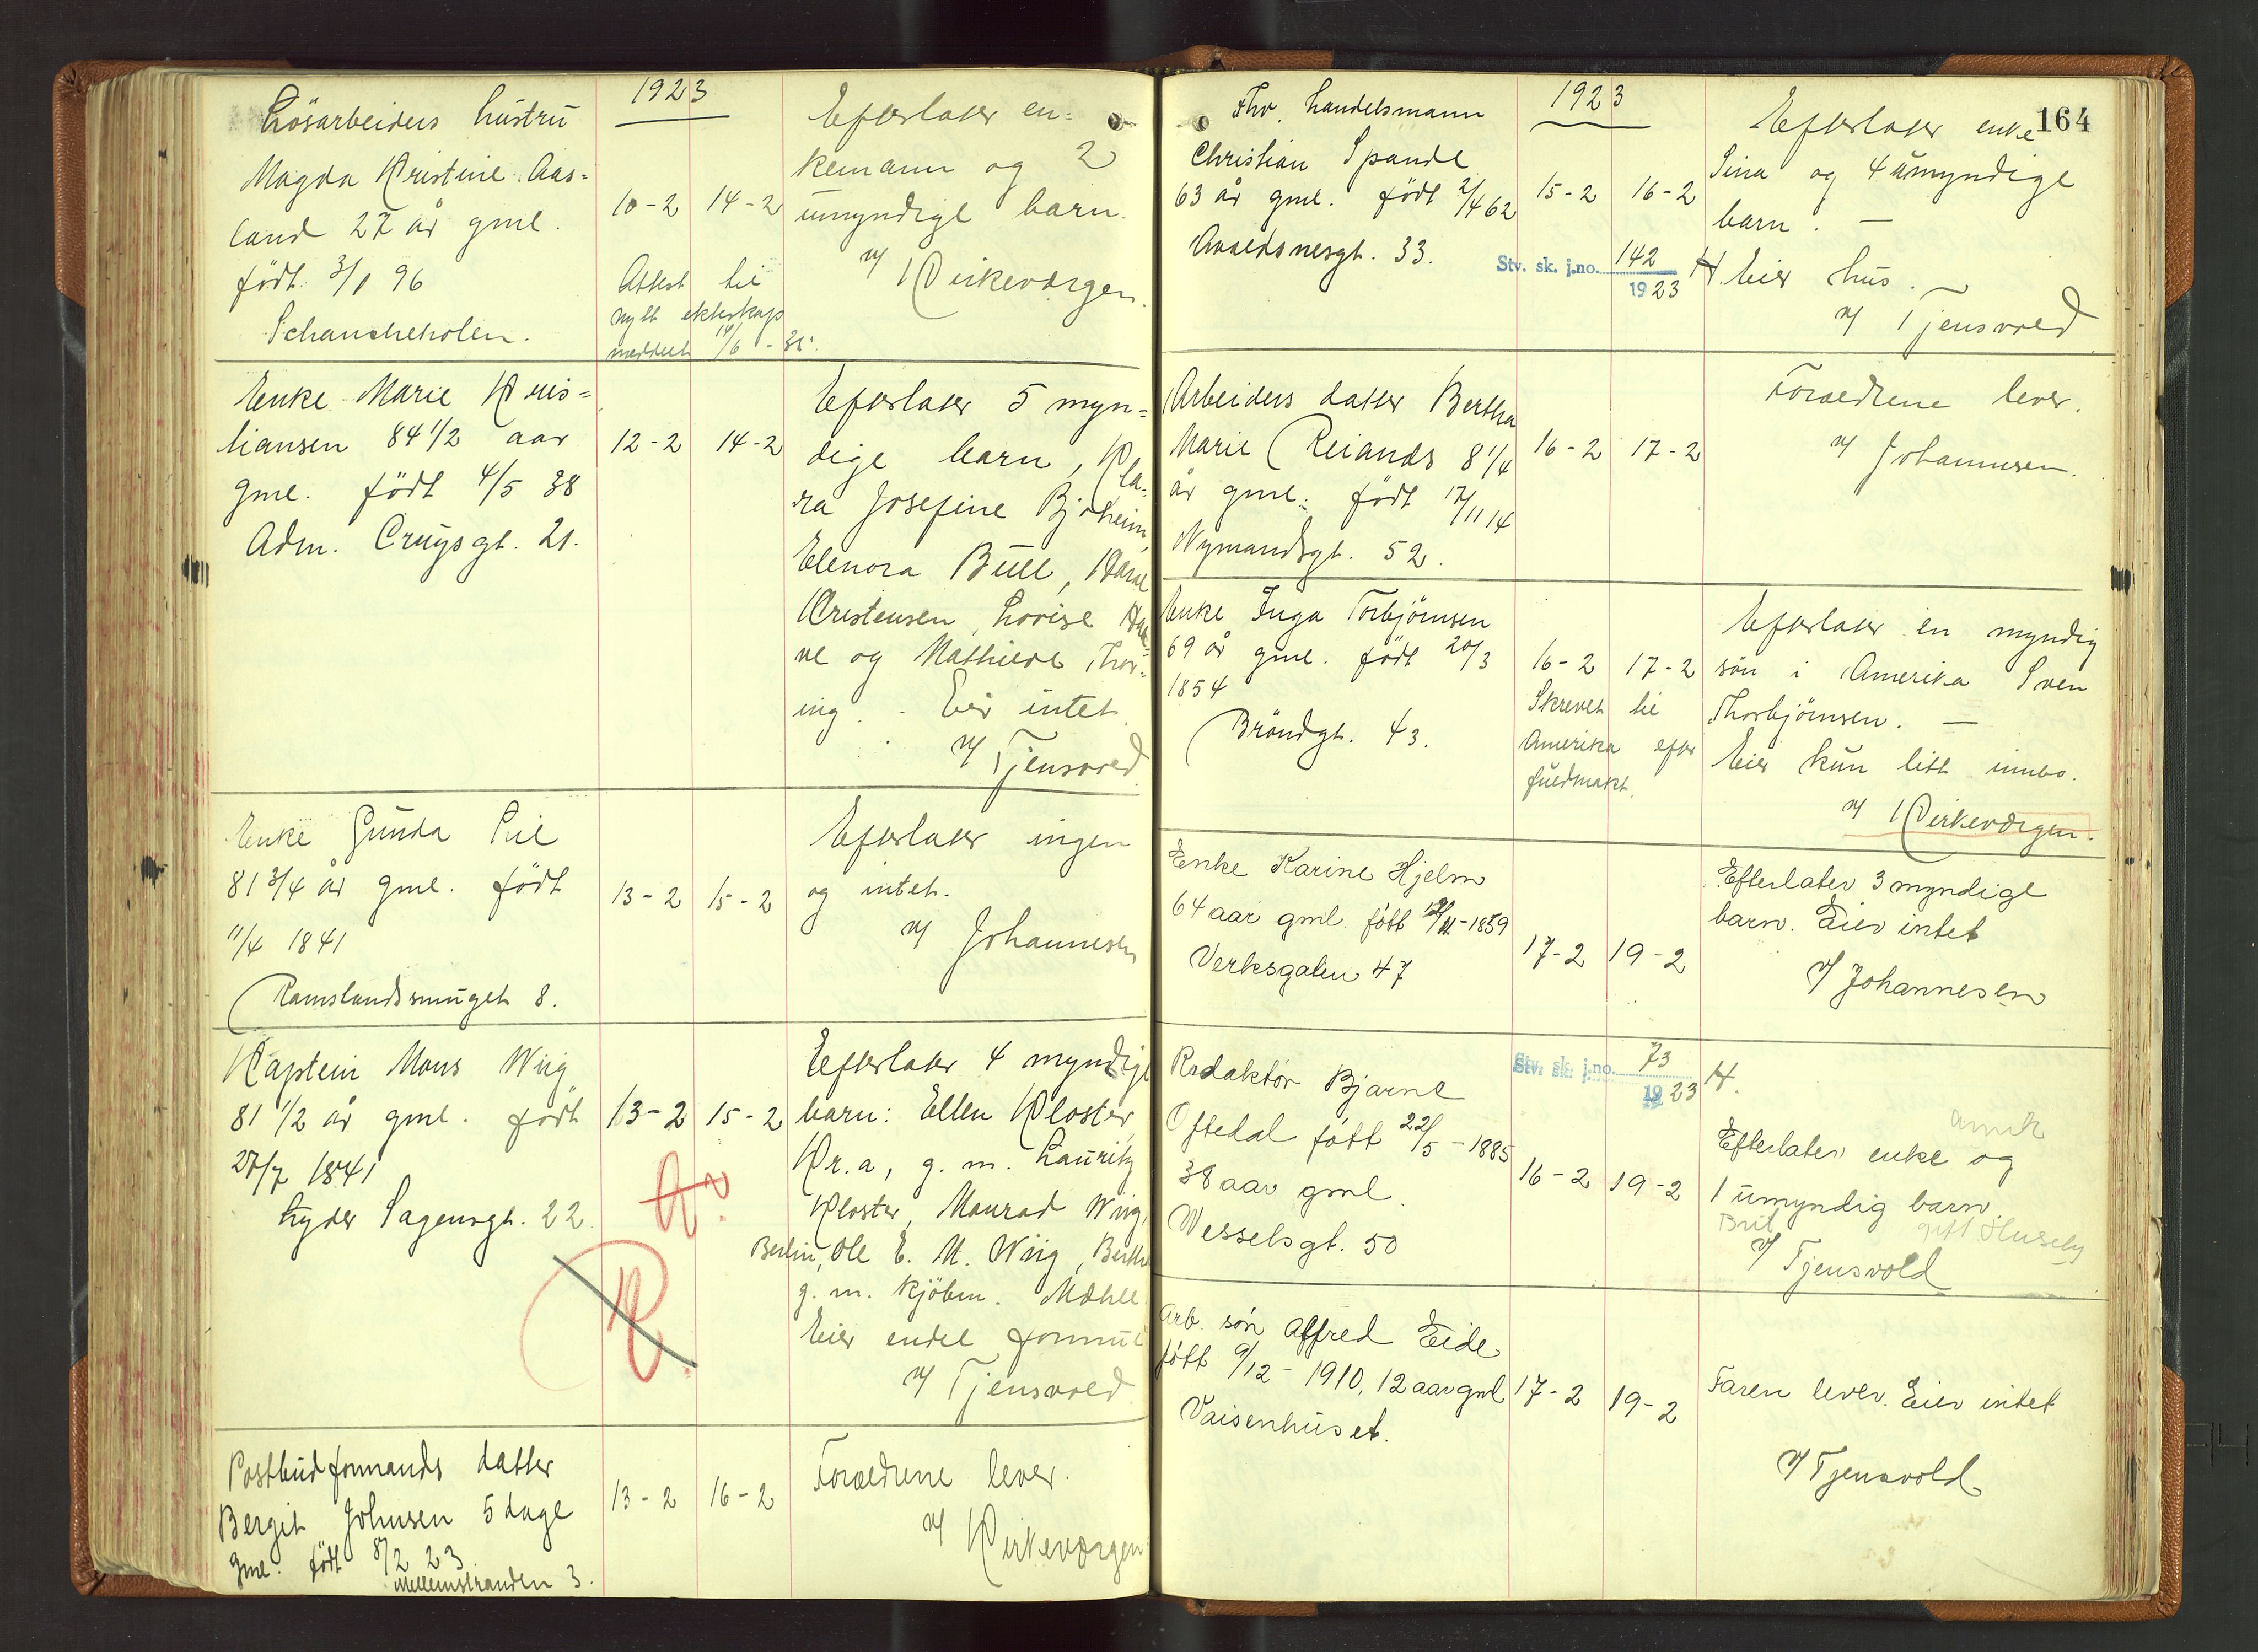 1923
Lösarbeiders hustru
Magda Kristine Aas=
land 27 år gml.
født 3/1 96
Schancheholen.
10-2 14-2
Attest til
nytt ekteskap
meddelt
Efterlater en=
kemann og 2
umyndige barn.
v/ Kirkeværgen.
Enke Marie Kris=
tiansen 84 1/2 aar
gml. født 4/5 38
Adm. Cruysgt. 21.
12-2 14-2
Efterlater 5 myn=
dige barn, Kla-
ra Josefine Bjoheim,
Elenora Bull,
Kristensen, Lovise
ne og Mathilde Thor=
ing. - Eier intet
v/ Tjensvold
Enke Gunda
81 3/4 år gml. født
11/4 1841
Ramslandssmuget 8.
13-2 15-2
Efterlater ingen
og intet.
v/ Johannesen
Kaptein Mons Wiig
81 1/2 år gml. født
27/7 1841
Lyder Sagensgt. 22.
13-2 15-2
Efterlater 4 myndige
barn: Ellen Kloster,
Kr.a, g. m. Lauritz
Kloster, Monrad Wiig,
Berlin, Ole E. M. Wiig,
g. m. Kjöbm. Mæhle.
Eier endel formue
v/ Tjensvold
Postbudformands datter
Bergit Johnsen 5 dage
gml. født 8/2 23
Mellemstranden 3.
13-2 16-2
Forældrene lever.
v/ Kirkeværgen
164
1923
Fhv. handelsmann
Christian Spande
63 år gml. født 2/4 62
Avaldsnesgt. 33.
15-2 16-2
Stv. sk. j.no. 142
1923
Efterlater enke
Sina og 4 umyndige
barn. -
H. Eier hus.
v/ Tjensvold
Arbeiders datter Bertha
Marie Reiands 8 1/4
år gml. født 17/11 14
Nymandsgt. 52.
16-2 17-2
Forældrene lever.
v/ Johannesen.
Enke Inga Torbjörnsen
69 år gml. født 20/3
1854
Bröndgt. 43.
16-2 17-2
Skrevet til
Amerika efter
fuldmakt.
Efterlater en myndig
sön i Amerika Sven
Thorbjörnsen. -
Eier kun litt innbo.
v/ Kirkeværgen.
Enke Karine Hjelm
64 aar gml. fött -1859
Verksgaten 47
17-2 19-2
Efterlater 3 myndige
barn. Eier intet
v/ Johannesen
Redaktör Bjarne
Oftedal fött 22/5 - 1885
38 aar gml.
Wesselsgt. 50
Stv. sk. j.no. 73
1923
16-2 19-2
H.
Efterlater enke og
1 umyndig barn.
Brit
gift
v/ Tjensvold
Arb. sön Alfred Eide
fött 9/12 - 1910, 12 aar gml
Vaisenhuset.
17-2 19-2
Faren lever. Eier intet
v/ Tjensvold